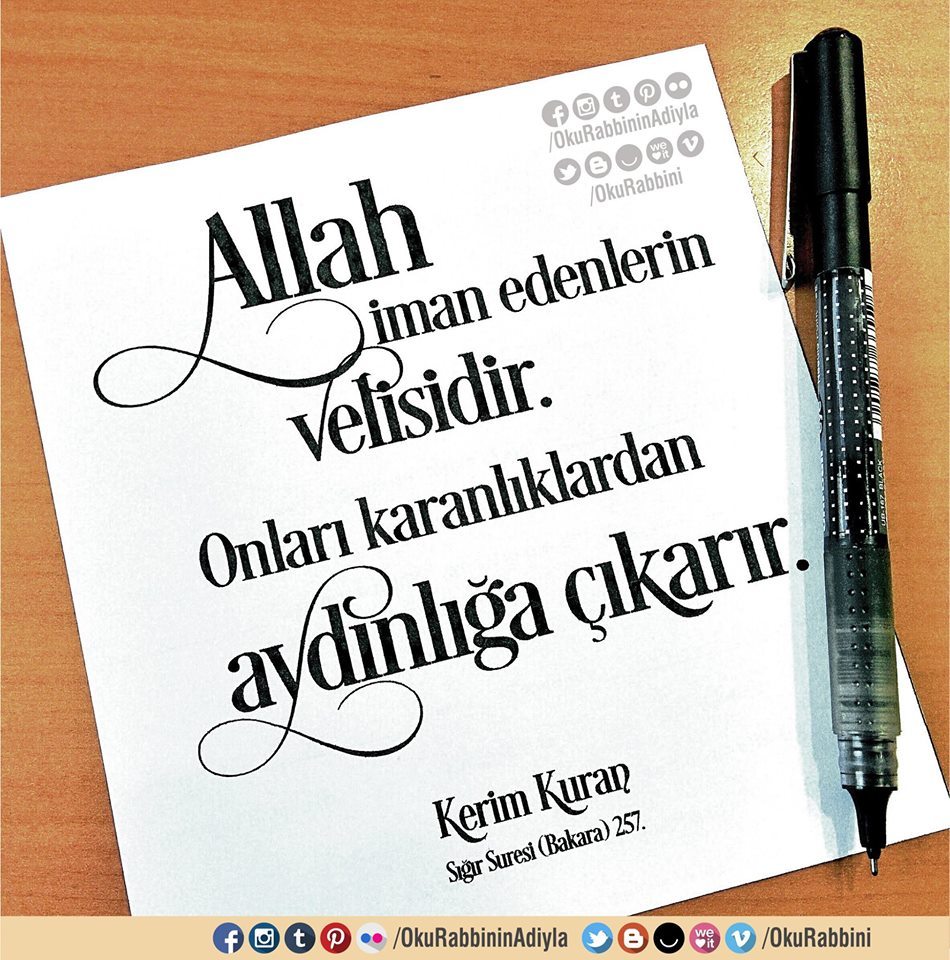 /OkuRabbininAdiyla
/OkuRabbini
Allah
iman edenlerin
velisidir.
Onları karanlıklardan
aydınlığa çıkarır.
Kerim Kuran
Sığır Suresi (Bakara) 257.
UB-167 BLACK
/OkuRabbininAdiyla /OkuRabbini